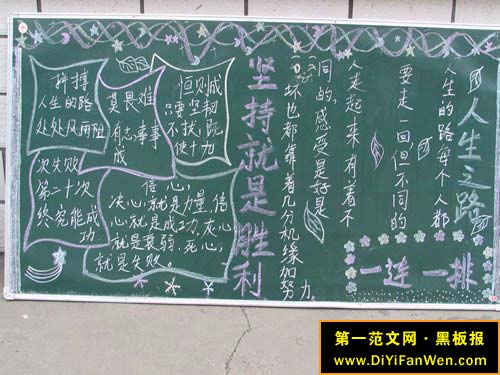 拼搏
人生的路
处处风雨阻
莫畏难
有志事事
成
恒则成
只要坚韧
不拔,既
使十力
次失败
第一十次
终究能成
功
信心,
决心,就是力量,信
心,就是成功,灰心,
就是衰弱,死心,
就是失败。
坚持就是胜利
人生之路
人生的路每个人都
要走一回,但不同的
人走起来有着不
同的,感受是好是
坏也都靠着几分机缘加努力。
一连一排
第一范文网·黑板报
www.DiYiFanWen.com